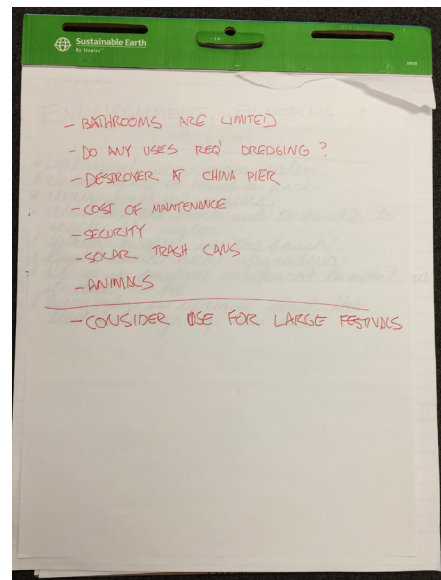 Sustainable Earth
By Staples
- BATHROOMS ARE LIMITED
- DO ANY USES REQ' DREDGING ?
- DESTROYER AT CHINA PIER
- COST OF MAINTENANCE
- SECURITY
- SOLAR TRASH CANS
- ANIMALS
- CONSIDER USE FOR LARGE FESTIVALS